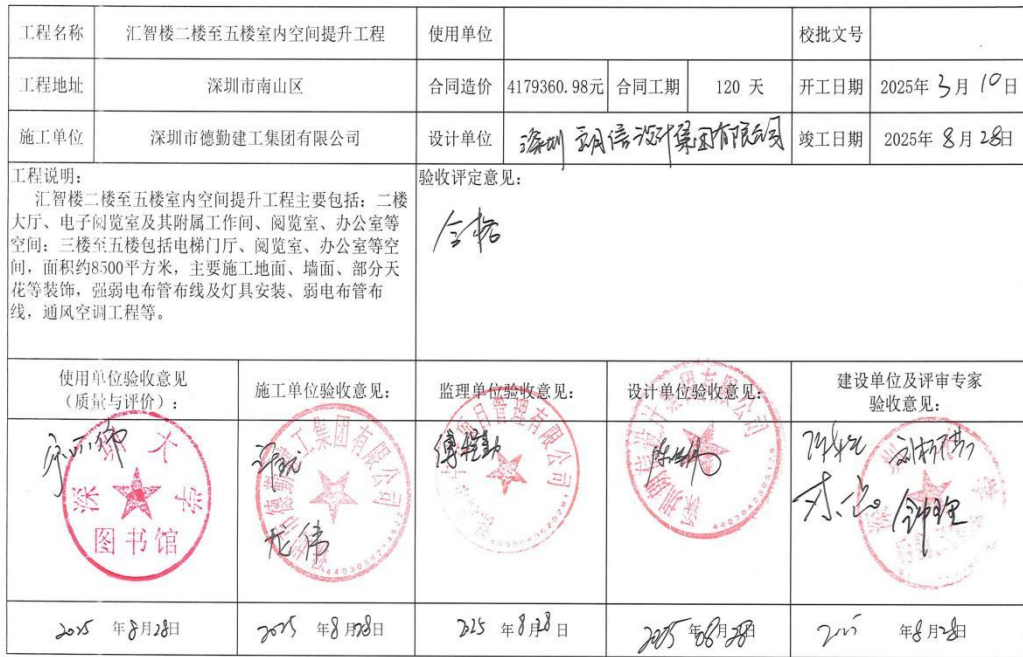 工程名称 汇智楼二楼至五楼室内空间提升工程 使用单位 校批文号
工程地址 深圳市南山区 合同造价 4179360.98元 合同工期 120 天 开工日期 2025年 3月 10日
施工单位 深圳市德勤建工集团有限公司 设计单位 深圳朗信设计集团有限公司 竣工日期 2025年 8月 28日
工程说明:
汇智楼二楼至五楼室内空间提升工程主要包括：二楼
大厅、电子阅览室及其附属工作间、阅览室、办公室等
空间；三楼至五楼包括电梯门厅、阅览室、办公室等空
间，面积约8500平方米，主要施工地面、墙面、部分天
花等装饰，强弱电布管布线及灯具安装、弱电布管布
线，通风空调工程等。
验收评定意见:
合格
使用单位验收意见
（质量与评价）:
施工单位验收意见:
监理单位验收意见:
设计单位验收意见:
建设单位及评审专家
验收意见:
深 大 学
图书馆
德勤建工集团有限公司
项目管理有限公司
设计集团有限公司
2025 年8月28日
2025 年8月28日
2025 年8月28日
2025 年8月28日
年8月28日